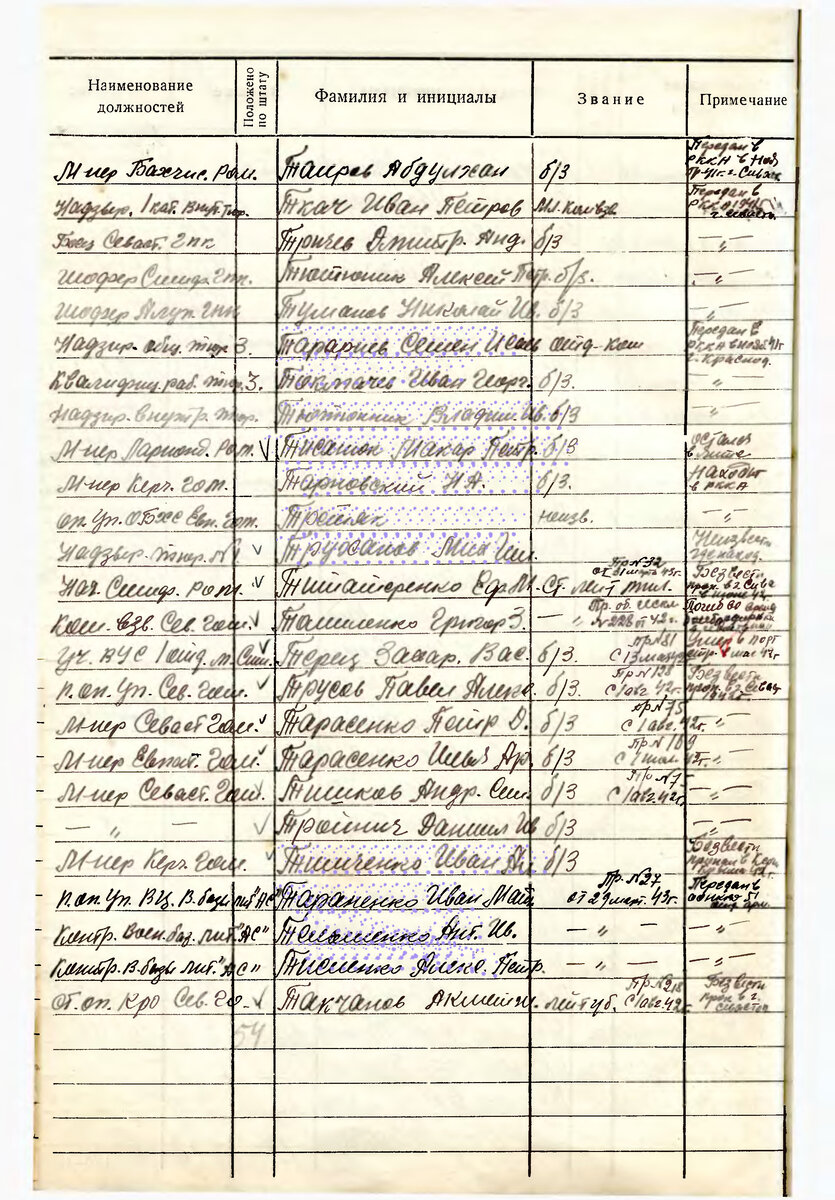 Наименование должностей Положено по штату Фамилия и инициалы Звание Примечание
М-нер Бахчис. Р.о.м. Таиров Абдулхан б/з Передан в РККА в
Надзир. 1 кат. Внут. Тюр. Ткач Иван Петров мл. ком взв. Передан в РККА
Боец Севаст. гпк Трпчев Дмитр. Анд. б/з — „ —
шофер Симф. гпк. Тютюник Алексей Петр. б/з. — „ —
шофер Алуп. гпк Туманов Николай Ив. б/з — „ —
Надзир. общ. тюр 3. Тарариев Семен отд-ком Передан в РККА в нояб 41г г. Краснод.
Квалифиц. раб. тюр. 3. Иван Георг. б/з. — „ —
Надзир. внутр. тюр. Тютюнник Владим. Ив. б/з — „ —
М-нер Р.о.м. V Тисатюк Макар Петр. б/з остался в
М-нер Керч. го м. Тарновский Н А. б/з. Находит в РККА
оп. уп. ОБХСС Евп. го м. Третяк неизв. — „ —
Надзир. тюр. N1 V Труханов Мих Ил. Неизвест где наход.
Нач. Симф. Р.о.м. V Титаренко Ефр М. Ст. лейт мил. Пр N32 от 31 марта 43г. Без вест проп. в г Сева в июне 42г
Ком. взв. Сев. го м. V Томиленко Григор З. — „ — Пр. об. искл N 228 от 42г. Погиб во время бомбардировки
Уч. ВУС 1 отд. м. Сим. Терец Захар. Вас. б/з Пр N81 с 13 мая Умер в порт мае 42г
п. оп. уп. Сев. го м. V Трусов Павел Алекс. б/з. Пр N138 с 1 авг. 42г. Без вест проп. в г Севас
М-нер Севаст го м. V Тарасенко Петр Д. б/з Пр N75 с 1 авг. 42г. — „ —
М-нер Евпат. го м. V Тарасенко Илья Ар. б/з Пр N 169 с 1 июл. 42г. — „ —
М-нер Севаст. го м. V Тишков Андр. Сем. б/з с 1 авг. 42г. — „ —
— „ — V Тройнич Даниил Ив б/з — „ —
М-нер Керч. го м. V Тимченко Иван Ан б/з Без вести пропал в Керч
п. оп. уп. ВЦ. В. базы лит "АС" Тараненко Иван Мат. Пр. N27 от 29 март. 43г. Передан в
Контр. Воен. баз. лит. "АС" Тельшенко Ант. Ив. — „ — — „ —
Контр. В. базы лит. "АС" Тисленко Алекс. Петр. — „ — — „ —
Ст. оп. КРО Сев. го V Такчанов лейт гб. Пр N218 с 1 авг. 42г Без вести проп в г. Севастоп
54